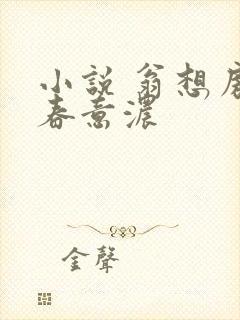 小説 翁想
春意濃
金聲